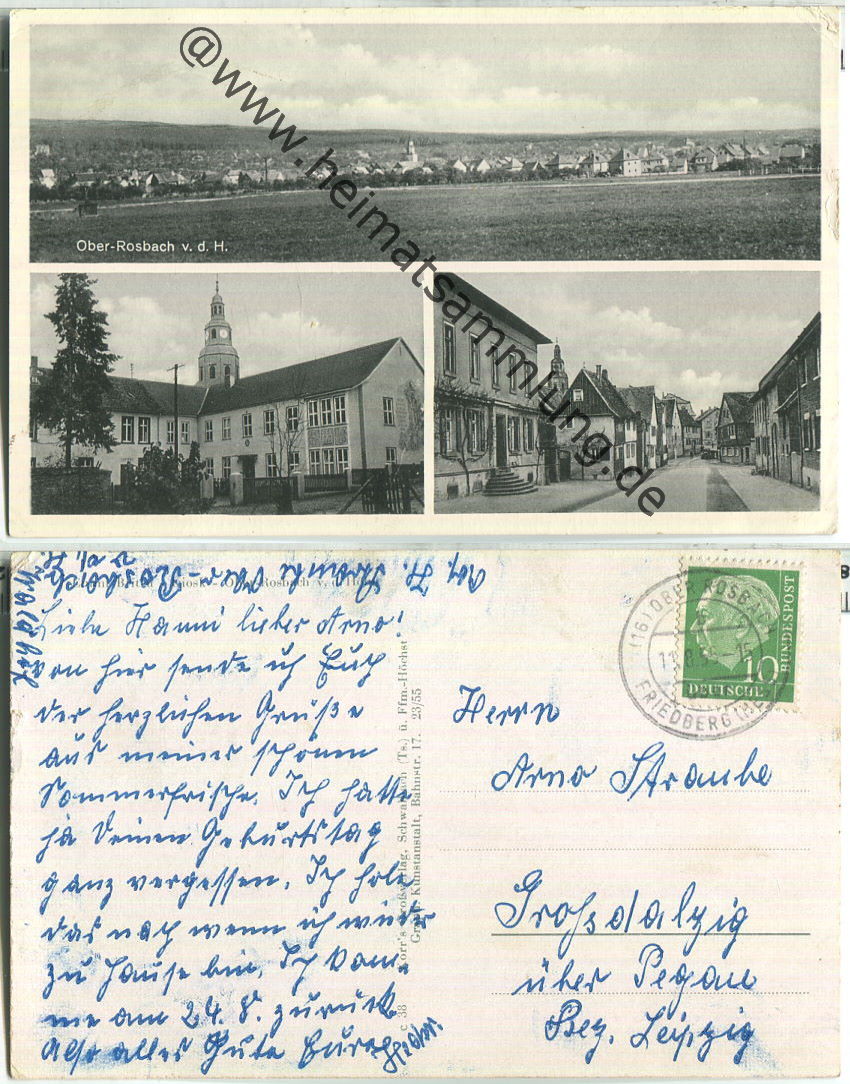 @www.heimatsammlung.de
Ober-Rosbach v. d. H.
Liebe Hanni lieber Arno!
von hier sende ich Euch
der herzlichen Grüße
aus meiner schönen
Sommerfrische. Ich hatte
ja Deinen Geburtstag
ganz vergessen. Ich hole
das nach wenn ich wieder
zu Hause bin. Ich kom-
me am 24. 8. zurück
Also alles Gute Eure
Korr's Großverlag, Schwalbach (Ts.) ü. Ffm.-Höchst
Graph. Kunstanstalt, Bahnstr. 17. 23/55
c 38
(16) OBER ROSBACH
FRIEDBERG
DEUTSCHE
BUNDESPOST
10
Herrn
Arno Straube
Großdalzig
über Pegau
Bez. Leipzig